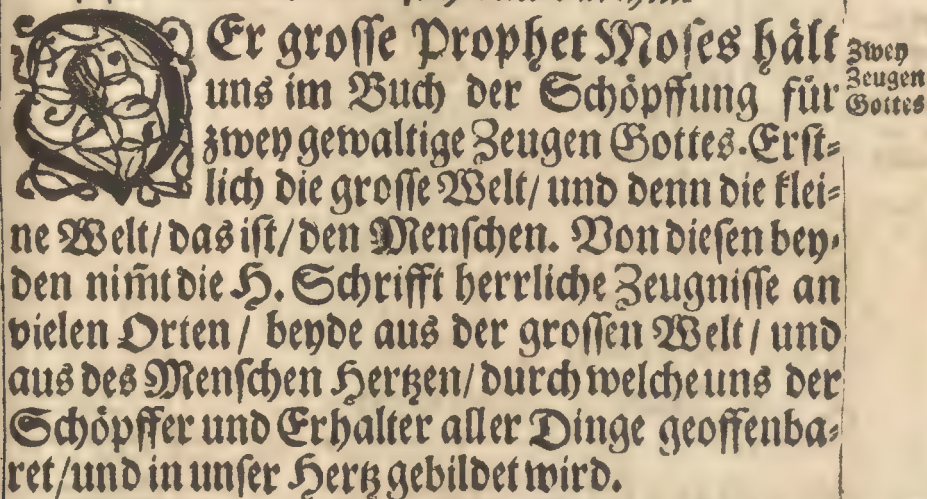 DEr grosse Prophet Moses hält
uns im Buch der Schöpffung für
zwey gewaltige Zeugen Gottes. Erst⸗
lich die grosse Welt/ und denn die klei⸗
ne Welt/ das ist/ den Menschen. Von diesen bey⸗
den nim̃t die H. Schrifft herrliche Zeugnisse an
vielen Orten/ beyde aus der grossen Welt/ und
aus des Menschen Hertzen/ durch welche uns der
Schöpffer und Erhalter aller Dinge geoffenba⸗
ret/ und in unser Hertz gebildet wird.
Zwey
Zeugen
Gottes